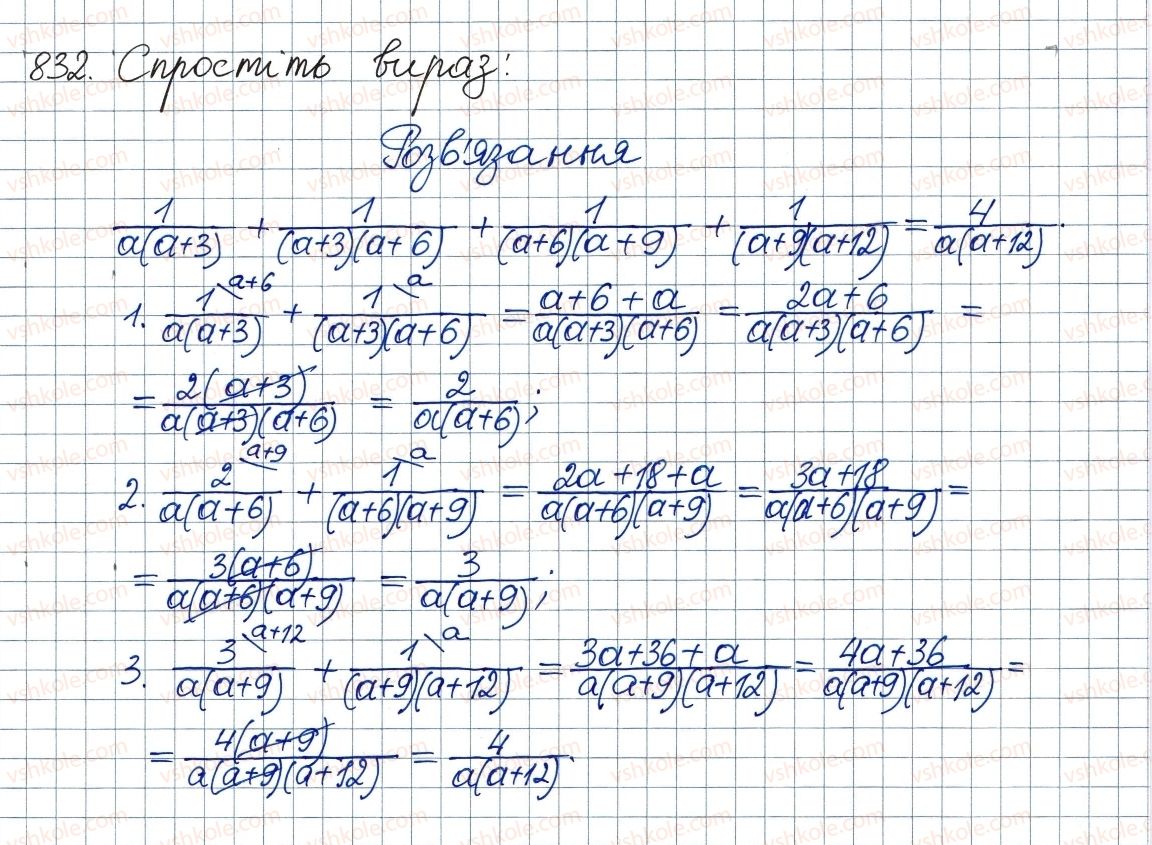 832. Спростіть вираз:
Розв'язання
1/(a(a+3)) + 1/((a+3)(a+6)) + 1/((a+6)(a+9)) + 1/((a+9)(a+12)) = 4/(a(a+12)).
1. 1\a+6/(a(a+3)) + 1\a/((a+3)(a+6)) = (a+6+a)/(a(a+3)(a+6)) = (2a+6)/(a(a+3)(a+6)) =
= 2(a+3)/(a(a+3)(a+6)) = 2/(a(a+6));
2. 2\a+9/(a(a+6)) + 1\a/((a+6)(a+9)) = (2a+18+a)/(a(a+6)(a+9)) = (3a+18)/(a(a+6)(a+9)) =
= 3(a+6)/(a(a+6)(a+9)) = 3/(a(a+9));
3. 3\a+12/(a(a+9)) + 1\a/((a+9)(a+12)) = (3a+36+a)/(a(a+9)(a+12)) = (4a+36)/(a(a+9)(a+12)) =
= 4(a+9)/(a(a+9)(a+12)) = 4/(a(a+12)).
vshkole.com